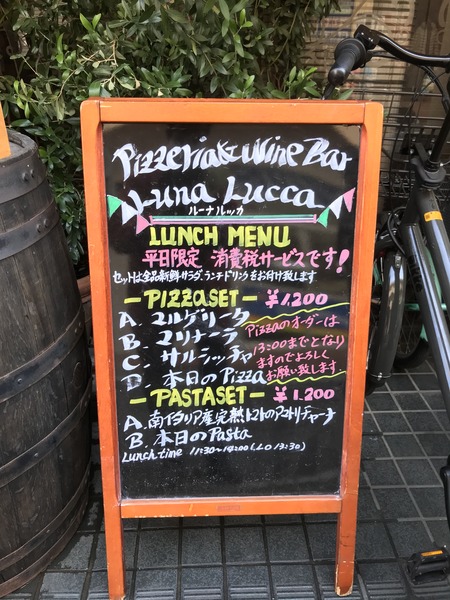 Pizzeria & Wine Bar
Luna Lucca
ルーナルッカ
LUNCH MENU
平日限定 消費税サービスです!
セットは全品新鮮サラダ、ランチドリンクをお付け致します
-PIZZASET- ¥1.200
A. マルゲリータ
B. マリナーラ
C. サルシッチャ
D. 本日のPizza
Pizzaのオーダーは
13:00までとなり
ますのでよろしく
お願い致します.
-PASTASET- ¥1.200
A. 南イタリア産完熟トマトのアマトリチャーナ
B. 本日のPasta
Lunch time 11:30~14:00 (L.O 13:30)